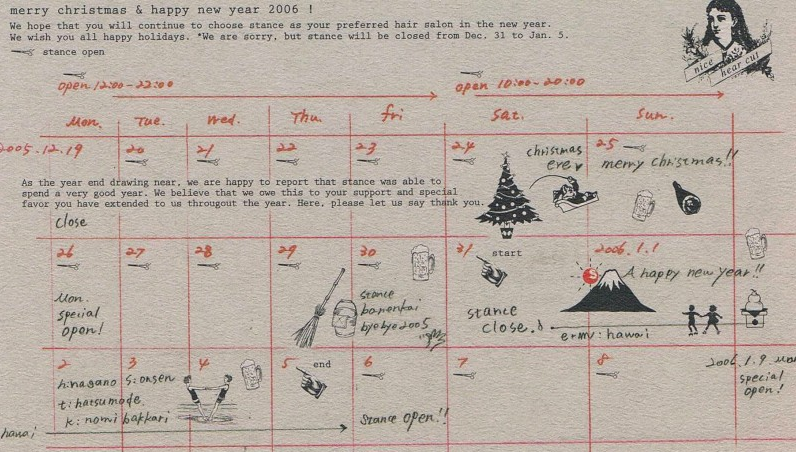 merry christmas & happy new year 2006 !
We hope that you will continue to choose stance as your preferred hair salon in the new year.
We wish you all happy holidays. *We are sorry, but stance will be closed from Dec. 31 to Jan. 5.
stance open
nice hear cut
open 12:00-22:00
open 10:00-20:00
Mon. Tue. Wed. Thu. fri Sat. Sun.
2005.12.19 20 21 22 23 24 25
christmas eve
merry christmas!!
As the year end drawing near, we are happy to report that stance was able to
spend a very good year. We believe that we owe this to your support and special
favor you have extended to us througout the year. Here, please let us say thank you.
close
26 27 28 29 30 31 start 2006.1.1
S
A happy new year!!
Mon.
special
open!
stance
bonenkai
byebye 2005
stance
close.
e+my: hawai
2 3 4 5 end 6 7 8 2006.1.9 Mon
h: nagano S: onsen
t: hatsumode
k: nomi bakkari
Stance open!!
special
open!
hawai